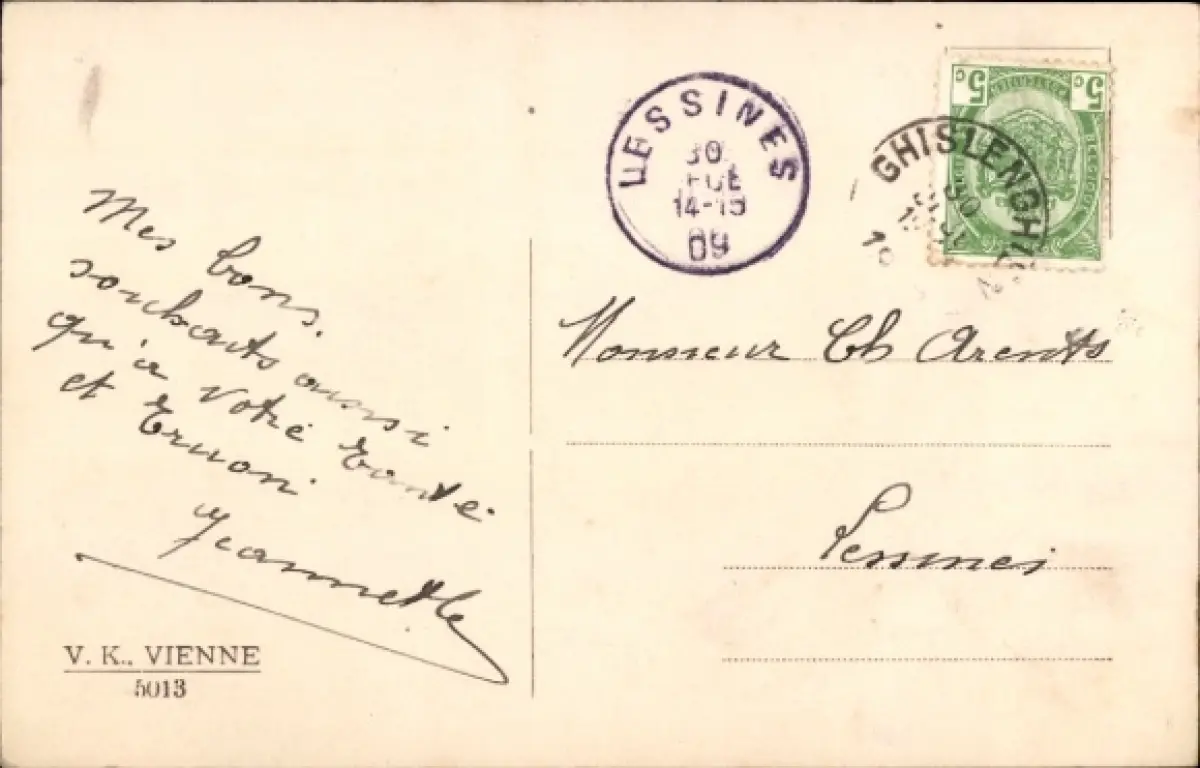 LESSINES
30
14-15
09
5 c
5 c
GHISLENGHIEN
Mes bons
souhaits aussi
qu'à votre tante
et
Jeannette
Monsieur Ch Arents
Lessines
V. K., VIENNE
5013